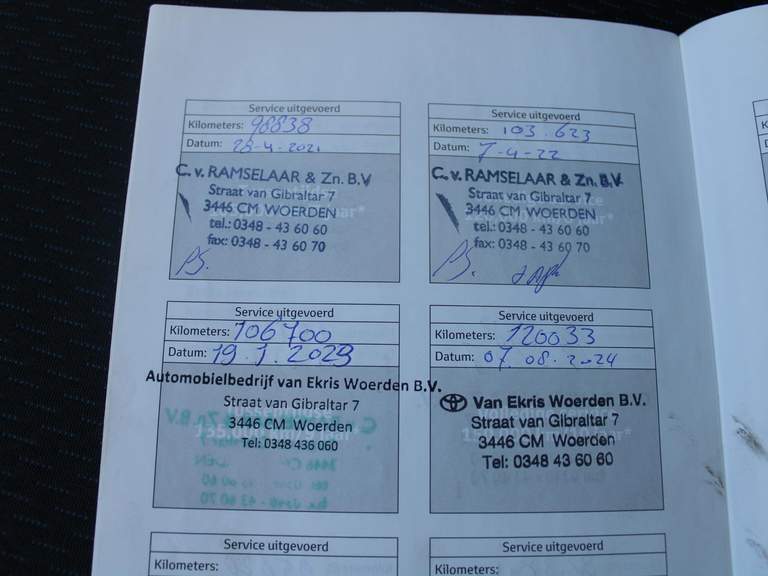 Service uitgevoerd
Kilometers: 98838
Datum: 28-4-2021
C. v. RAMSELAAR & Zn. B.V
Straat van Gibraltar 7
3446 CM WOERDEN
tel.: 0348 - 43 60 60
fax: 0348 - 43 60 70
Service uitgevoerd
Kilometers: 103.623
Datum: 7-4-22
C. v. RAMSELAAR & Zn. B.V.
Straat van Gibraltar 7
3446 CM WOERDEN
tel.: 0348 - 43 60 60
fax: 0348 - 43 60 70
Service uitgevoerd
Kilometers: 106700
Datum: 19.1.2023
Automobielbedrijf van Ekris Woerden B.V.
Straat van Gibraltar 7
3446 CM Woerden
Tel: 0348 436 060
Service uitgevoerd
Kilometers: 120033
Datum: 07.08.2024
Van Ekris Woerden B.V.
Straat van Gibraltar 7
3446 CM Woerden
Tel: 0348 43 60 60
Service uitgevoerd
Kilometers:
Service uitgevoerd
Kilometers: